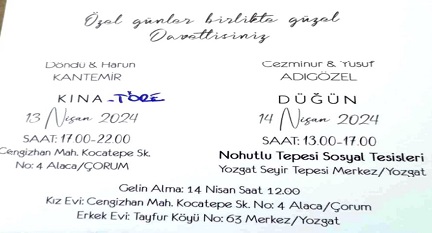 Özel günler birlikte güzel
Davetlisiniz
Döndü & Harun
KANTEMİR
Cezminur & Yusuf
ADIGÖZEL
KINA -TÖRE
13 Nisan 2024
SAAT: 17.00-22.00
Cengizhan Mah. Kocatepe Sk.
No: 4 Alaca/ÇORUM
DÜĞÜN
14 Nisan 2024
SAAT: 13.00-17.00
Nohutlu Tepesi Sosyal Tesisleri
Yozgat Seyir Tepesi Merkez/Yozgat
Gelin Alma: 14 Nisan Saat 12.00
Kız Evi: Cengizhan Mah. Kocatepe Sk. No: 4 Alaca/Çorum
Erkek Evi: Tayfur Köyü No: 63 Merkez/Yozgat